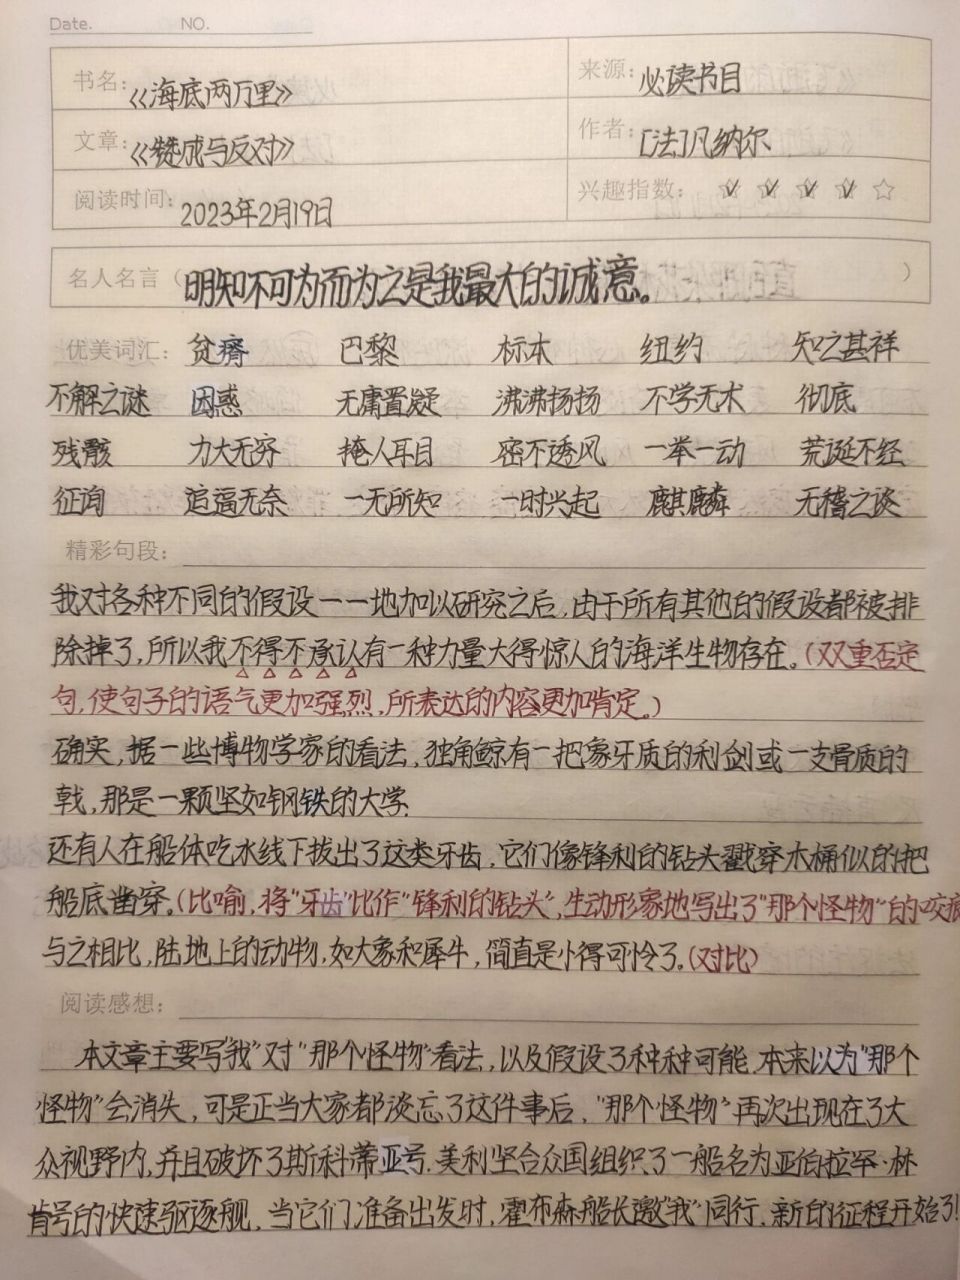 Date. NO.
书名：《海底两万里》 来源：必读书目
文章：《赞成与反对》 作者：[法]凡纳尔
阅读时间：2023年2月19日 兴趣指数：☆☆☆☆☆
名人名言（明知不可为而为之是我最大的诚意。）
优美词汇：贫瘠 巴黎 标本 纽约 知之甚祥
不解之谜 因惑 无庸置疑 沸沸扬扬 不学无术 彻底
残骸 力大无穷 掩人耳目 密不透风 一举一动 荒诞不经
征询 追逼无奈 一无所知 一时兴起 麒麟 无稽之谈
精彩句段：
我对各种不同的假设一一地加以研究之后，由于所有其他的假设都被排
除掉了，所以我不得不承认有一种力量大得惊人的海洋生物存在。（双重否定
句，使句子的语气更加强烈，所表达的内容更加肯定。）
确实，据一些博物学家的看法，独角鲸有一把象牙质的利剑或一支骨质的
戟，那是一颗坚如钢铁的大学.
还有人在船体吃水线下拔出了这类牙齿，它们像锋利的钻头戳穿木桶似的把
船底凿穿。（比喻，将"牙齿"比作"锋利的钻头"，生动形象地写出了"那个怪物"的咬痕
与之相比，陆地上的动物，如大象和犀牛，简直是小得可怜了。（对比）
阅读感想：
本文章主要写"我"对"那个怪物"看法，以及假设了种种可能，本来以为"那个
怪物"会消失，可是正当大家都淡忘了这件事后，"那个怪物"再次出现在了大
众视野内，并且破坏了斯科蒂亚号.美利坚合众国组织了一般名为亚伯拉罕·林
肯号的快速驱逐舰，当它们准备出发时，霍布森船长邀"我"同行，新的征程开始了！